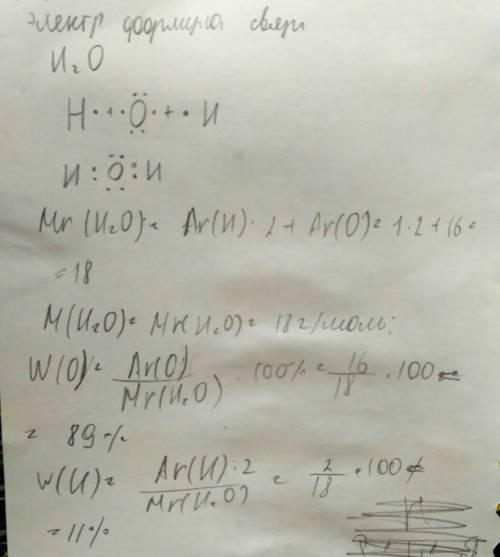 электр формула связи
H₂O
H· + ·Ö· + ·H
H : Ö : H
Mr (H₂O) = Ar(H) · 2 + Ar(O) = 1·2 + 16 =
= 18
M(H₂O) = Mr(H₂O) = 18 г/моль;
W(O) = Ar(O) / Mr(H₂O) · 100% = 16/18 · 100 =
= 89%
W(H) = Ar(H) · 2 / Mr(H₂O) = 2/18 · 100 =
= 11%